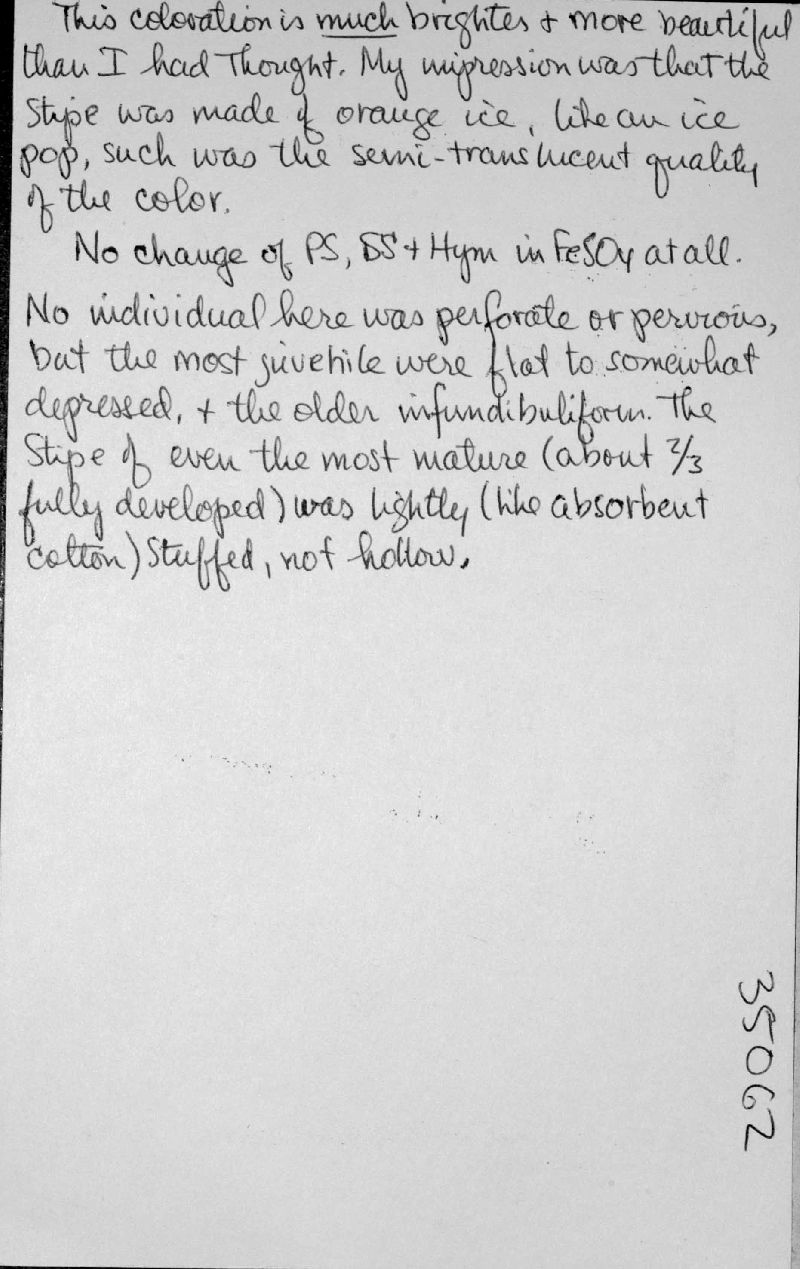 This coloration is much brighter & more beautiful
than I had thought. My impression was that the
Stipe was made of orange ice, like an ice
pop, such was the semi-translucent quality
of the color.
No change of PS, SS & Hym in FeSO4 at all.
No individual here was perforate or pervious,
but the most juvenile were flat to somewhat
depressed, & the older infundibuliform. The
Stipe of even the most mature (about 2/3
fully developed) was lightly (like absorbent
cotton) Stuffed, not hollow.
35062